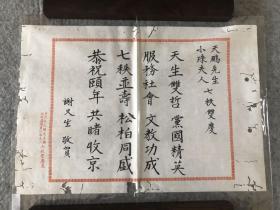 天鵬先生
小珠夫人 七秩雙慶
天生雙哲 黨國精英
服務社會 文教功成
七秩並壽 松柏同盛
恭祝頤年 共睹收京
謝又生 敬賀